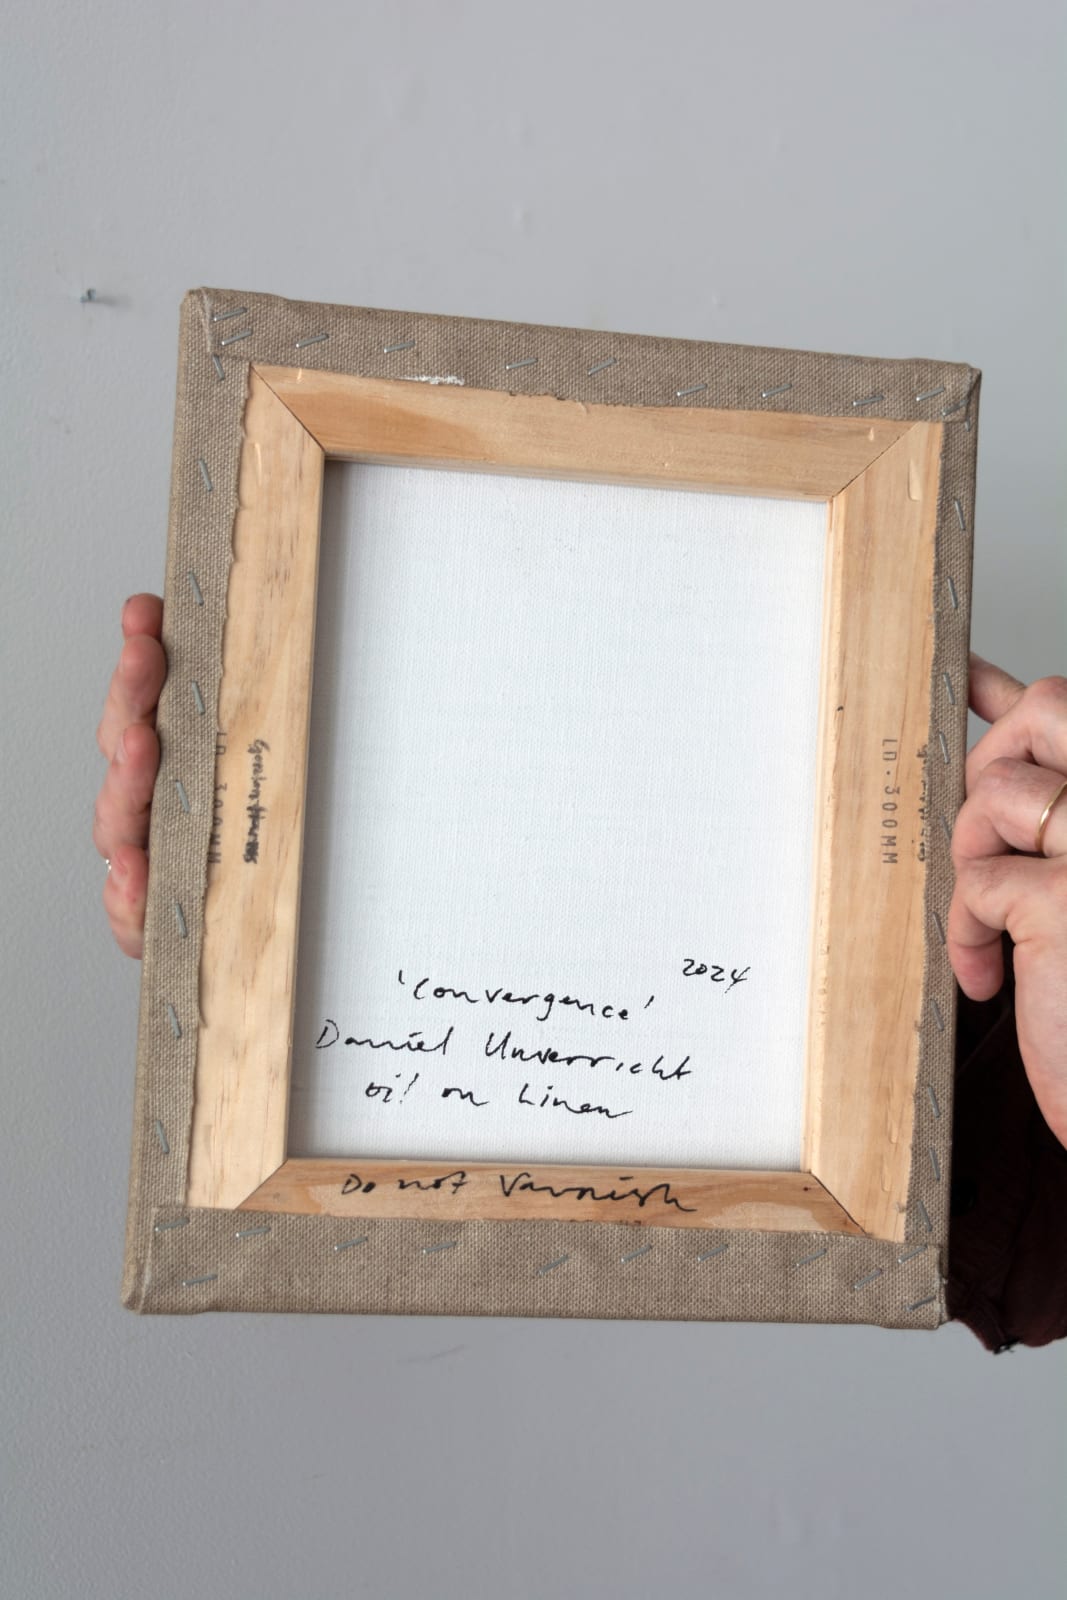 2024
'Convergence'
Daniel Unverricht
oil on Linen
Do not Varnish
LD.300MM